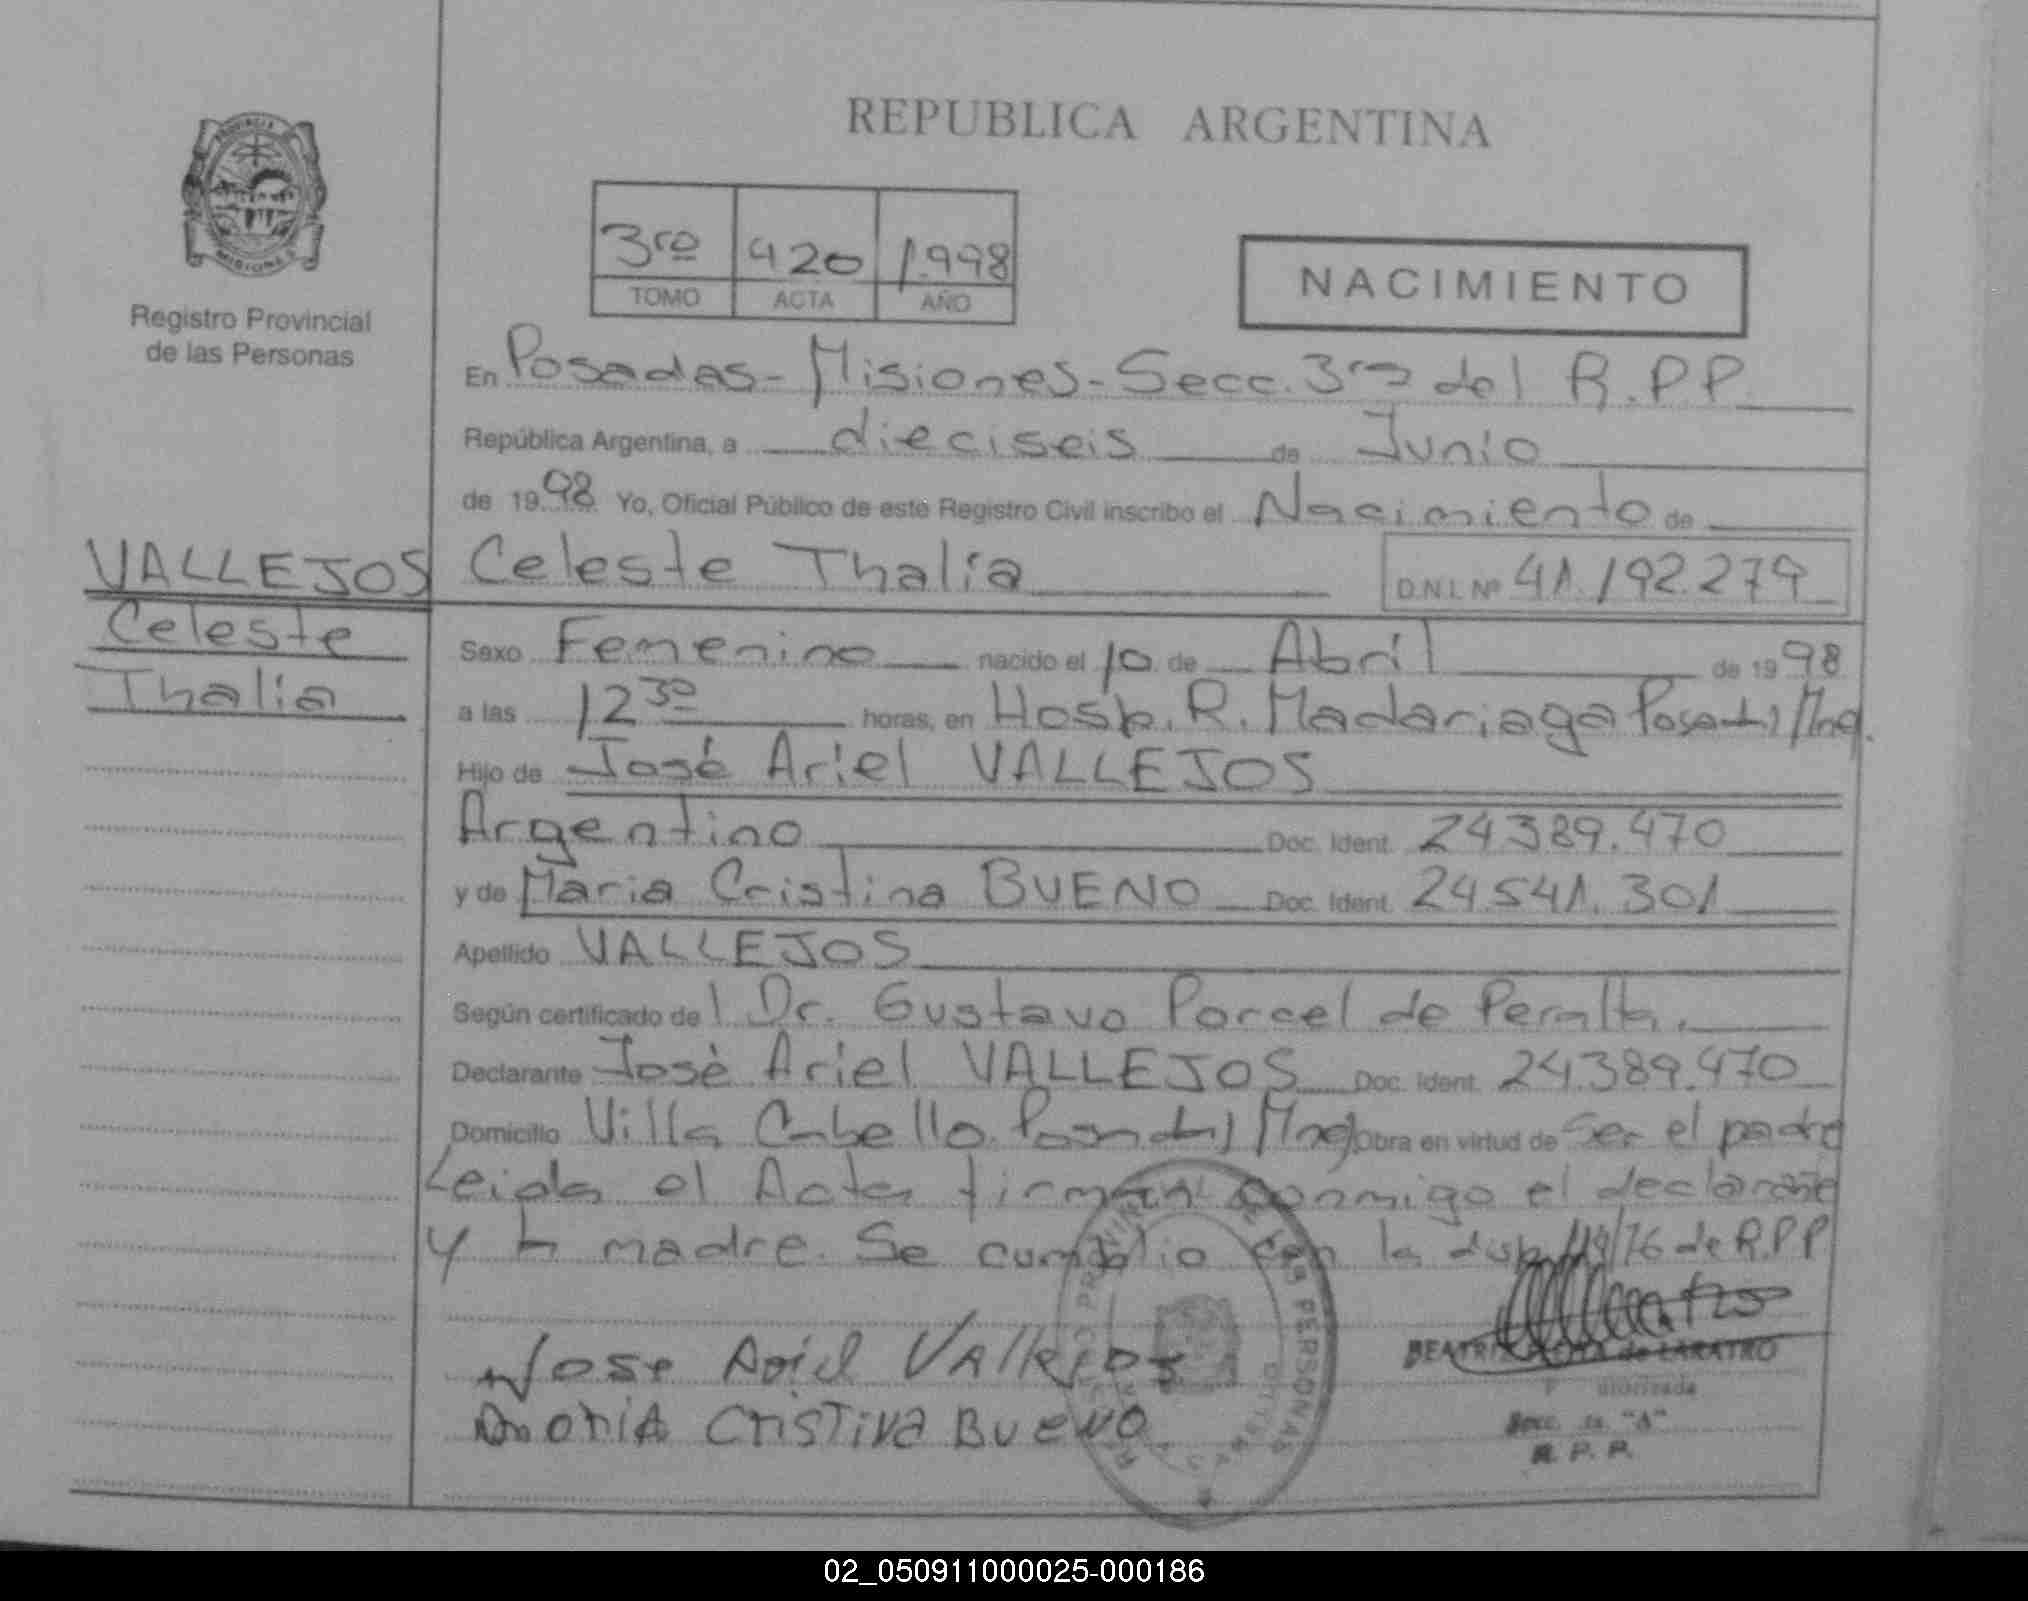 REPUBLICA ARGENTINA
PROVINCIA
MISIONES
Registro Provincial
de las Personas
3ro 420 1.998
TOMO ACTA AÑO
NACIMIENTO
En Posadas-Misiones-Secc. 3ra del R.P.P.
República Argentina, a dieciseis de Junio
de 1998 Yo, Oficial Público de este Registro Civil inscribo el Nacimiento de
VALLEJOS
Celeste
Thalía
Celeste Thalía D.N.I. Nº 41.192.279
Sexo Femenino nacido el 10 de Abril de 1998
a las 12 30 horas, en Hosp. R. Madariaga Posadas Mnes.
Hijo de José Ariel VALLEJOS
Argentino Doc. Ident. 24389.470
y de Maria Cristina BUENO Doc. Ident. 24.541.301
Apellido VALLEJOS
Según certificado del Dr. Gustavo Porcel de Peralta.
Declarante José Ariel VALLEJOS Doc. Ident. 24.389.470
Domicilio Villa Cabello. Posadas Mnes Obra en virtud de Ser el padre
Leida el Acta firman conmigo el declarante
y la madre. Se cumplio con la disp. /76 de R.P.P
Jose Ariel Vallejos
Maria Cristina Bueno
BEATRIZ de LARATRO
Secc. "A"
R. P. P.
02_050911000025-000186